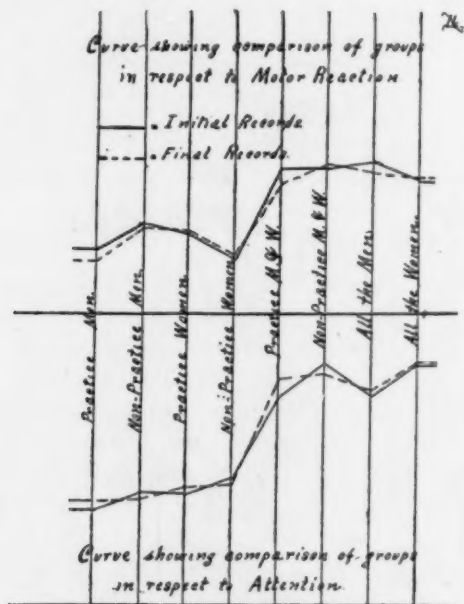 Curve showing comparison of groups
in respect to Motor Reaction
= Initial Records.
= Final Records.
Practice Men.
Non-Practice Men.
Practice Women.
Non-Practice Women.
Practice M. & W.
Non-Practice M. & W.
All the Men.
All the Women.
Curve showing comparison of groups
in respect to Attention.